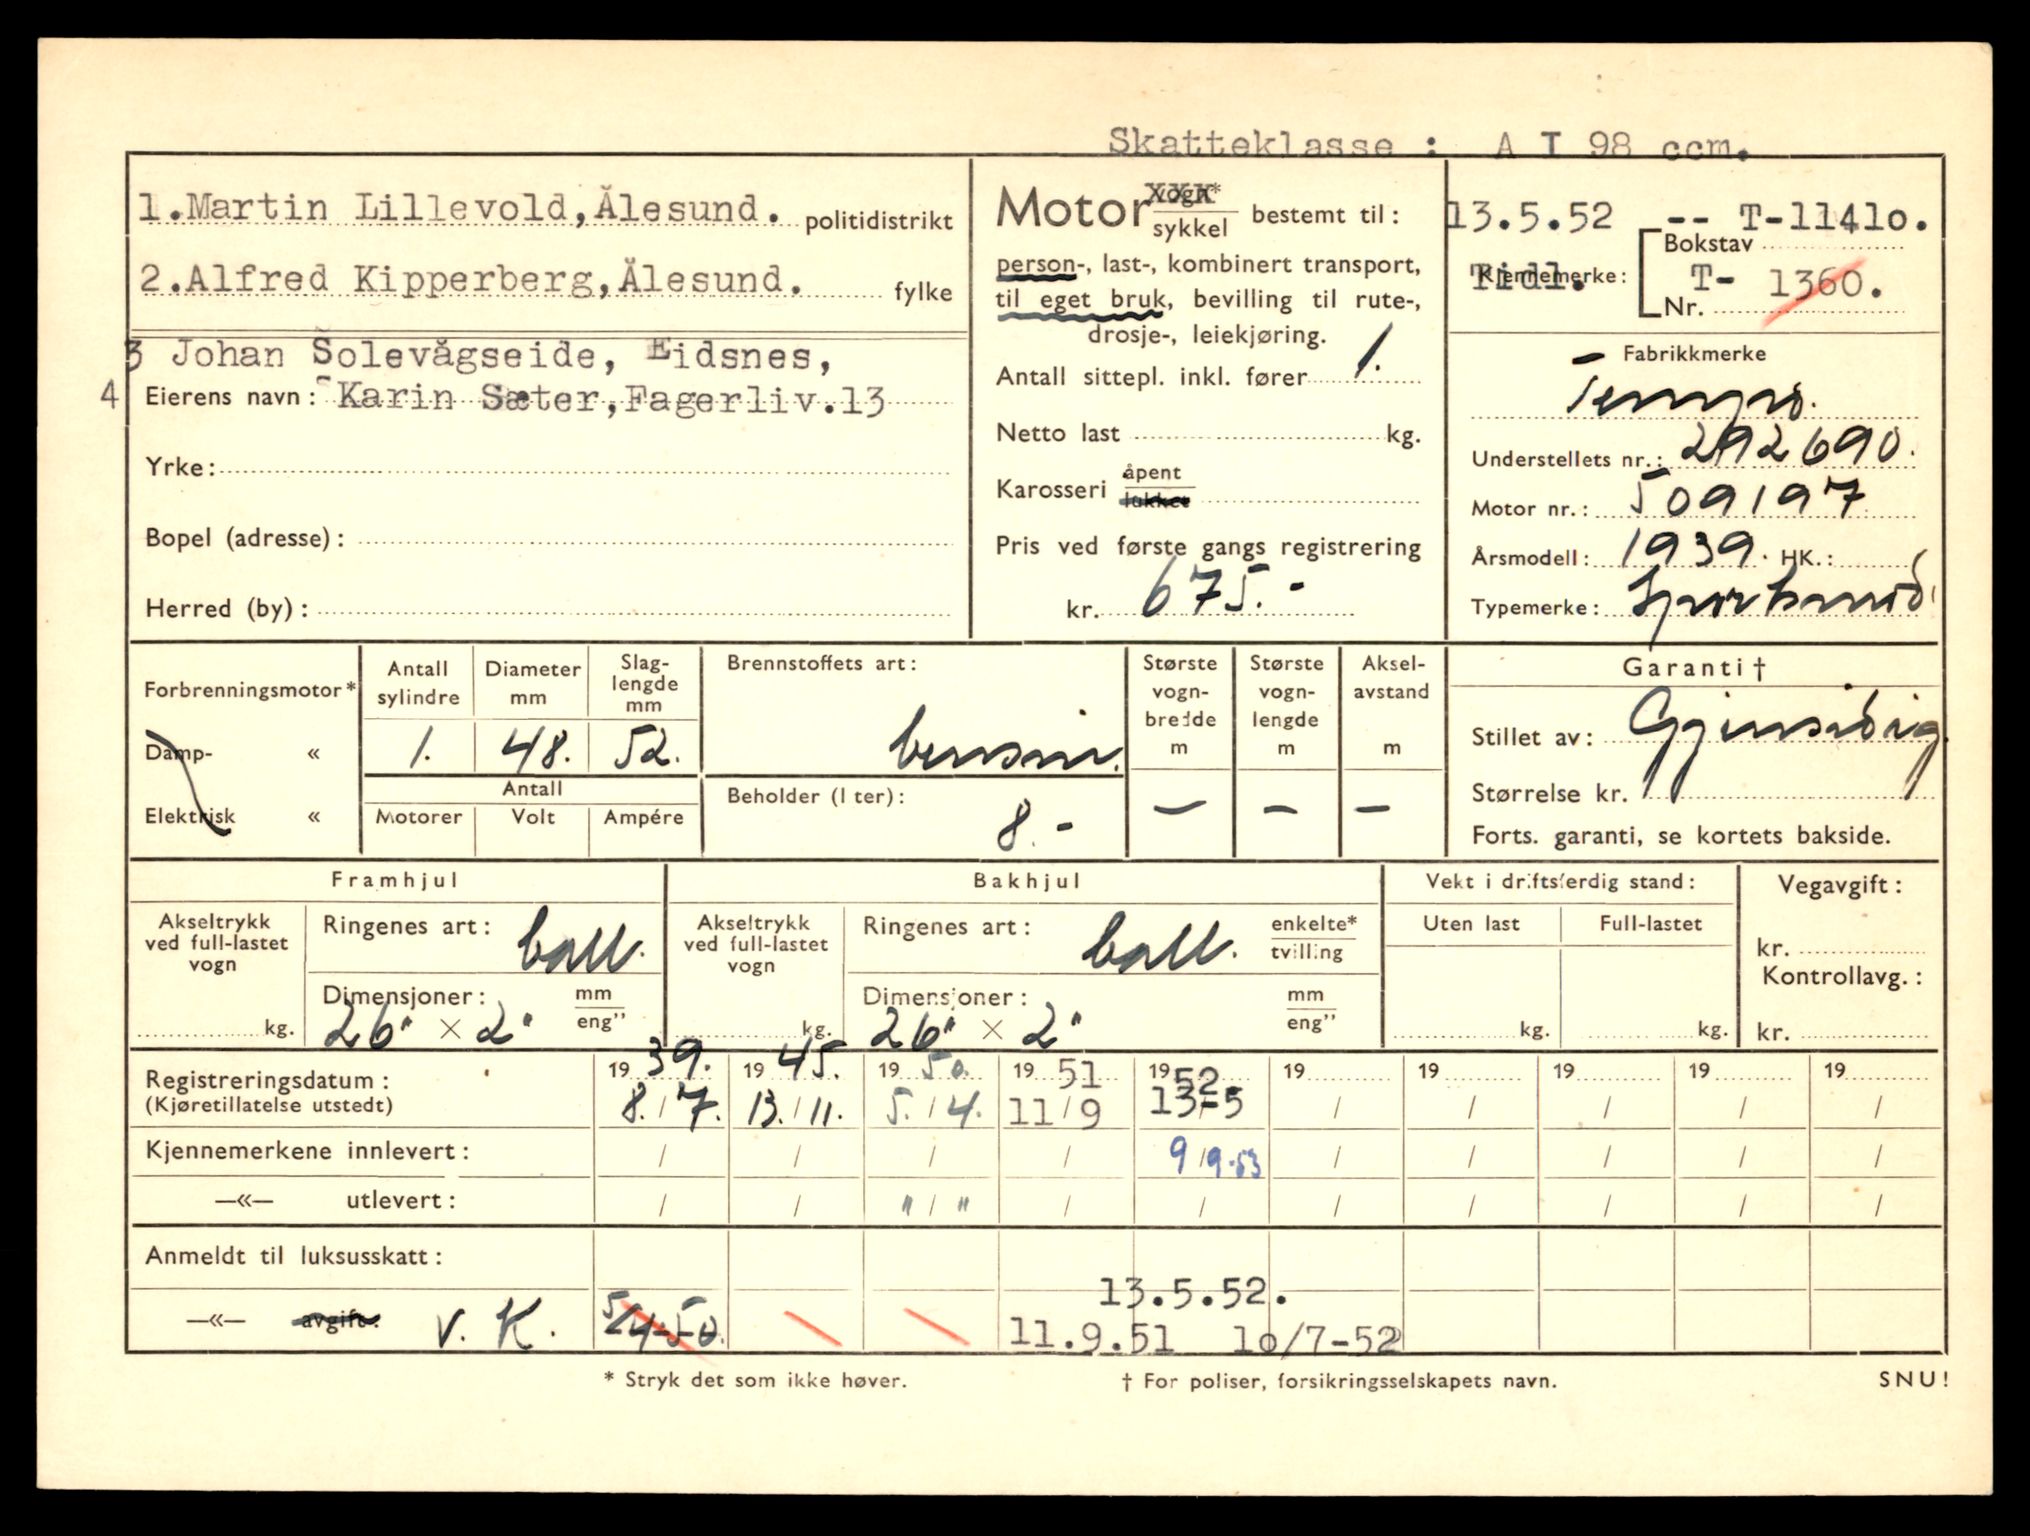 Skatteklasse : A I 98 ccm.
1.Martin Lillevold,Ålesund. politidistrikt
2.Alfred Kipperberg,Ålesund. fylke
3 Johan Solevågseide, Eidsnes,
4 Eierens navn: Karin Sæter,Fagerliv.13
Yrke:
Bopel (adresse):
Herred (by):
Motor vogn* sykkel bestemt til:
person-, last-, kombinert transport,
til eget bruk, bevilling til rute-,
drosje-, leiekjøring.
Antall sittepl. inkl. fører 1.
Netto last kg.
Karosseri åpent lukket
Pris ved første gangs registrering
kr. 675.-
13.5.52 -- T-11410.
Bokstav
Kjennemerke: Tidl. T- 1360.
Nr.
Fabrikkmerke
Tempo.
Understellets nr.: 292690.
Motor nr.: 509197
Årsmodell: 1939. HK.:
Typemerke: Sportsmod.
Forbrenningsmotor*
Damp- «
Elektrisk «
Antall sylindre Diameter mm Slaglengde mm
1. 48. 52.
Antall
Motorer Volt Ampére
Brennstoffets art:
bensin.
Beholder (l ter):
8.-
Største vogn-bredde m
Største vogn-lengde m
Aksel-avstand m
— — —
Garanti †
Stillet av: Gjensidig.
Størrelse kr.
Forts. garanti, se kortets bakside.
Framhjul
Akseltrykk ved full-lastet vogn
kg.
Ringenes art: ball.
Dimensjoner: mm eng"
26" × 2"
Bakhjul
Akseltrykk ved full-lastet vogn
kg.
Ringenes art: ball. enkelte* tvilling
Dimensjoner: mm eng"
26" × 2"
Vekt i driftsferdig stand:
Uten last Full-lastet
kg. kg.
Vegavgift:
kr.
Kontrollavg.:
kr.
Registreringsdatum: 19 39. 19 45. 19 50. 19 51 19 52 19 19 19 19 19
(Kjøretillatelse utstedt) 8./7. 13./11. 5./4. 11/9 13-5 / / / / /
Kjennemerkene innlevert: / / / / 9/9-53 / / / / /
—«— utlevert: / / "/" / / / / / / /
Anmeldt til luksusskatt:
13.5.52.
—«— avgift: v. K. 5/4-50. 11.9.51 10/7-52
* Stryk det som ikke høver. † For poliser, forsikringsselskapets navn. SNU!